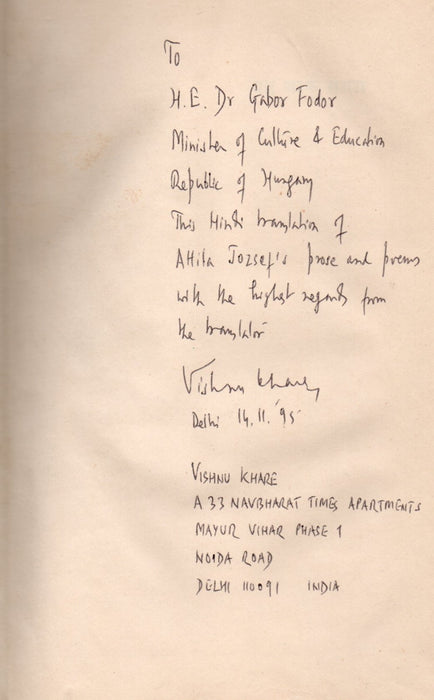 To
H.E. Dr Gabor Fodor
Minister of Culture & Education
Republic of Hungary
This Hindi translation of
Attila Jozsef's prose and poems
with the highest regards from
the translator
Vishnu Khare
Delhi 14.11.'95
VISHNU KHARE
A 33 NAVBHARAT TIMES APARTMENTS
MAYUR VIHAR PHASE 1
NOIDA ROAD
DELHI 110091 INDIA